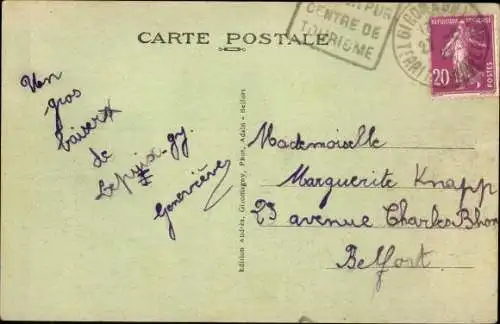 CARTE POSTALE
CENTRE DE
TOURISME
20
POSTES
Un
gros
baiser
de
Lepuix-gy.
Geneviève
Edition André, Giromagny, Phot. Adain - Belfort
Mademoiselle
Marguerite Knapp
23 avenue Charles Bhon
Belfort